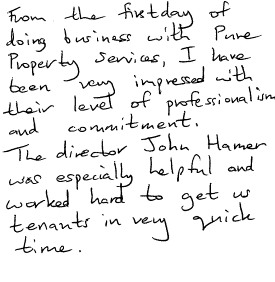 From the first day of
doing business with Pure
Property Services, I have
been very impressed with
their level of professionalism
and commitment.
The director John Hamer
was especially helpful and
worked hard to get us
tenants in very quick
time.